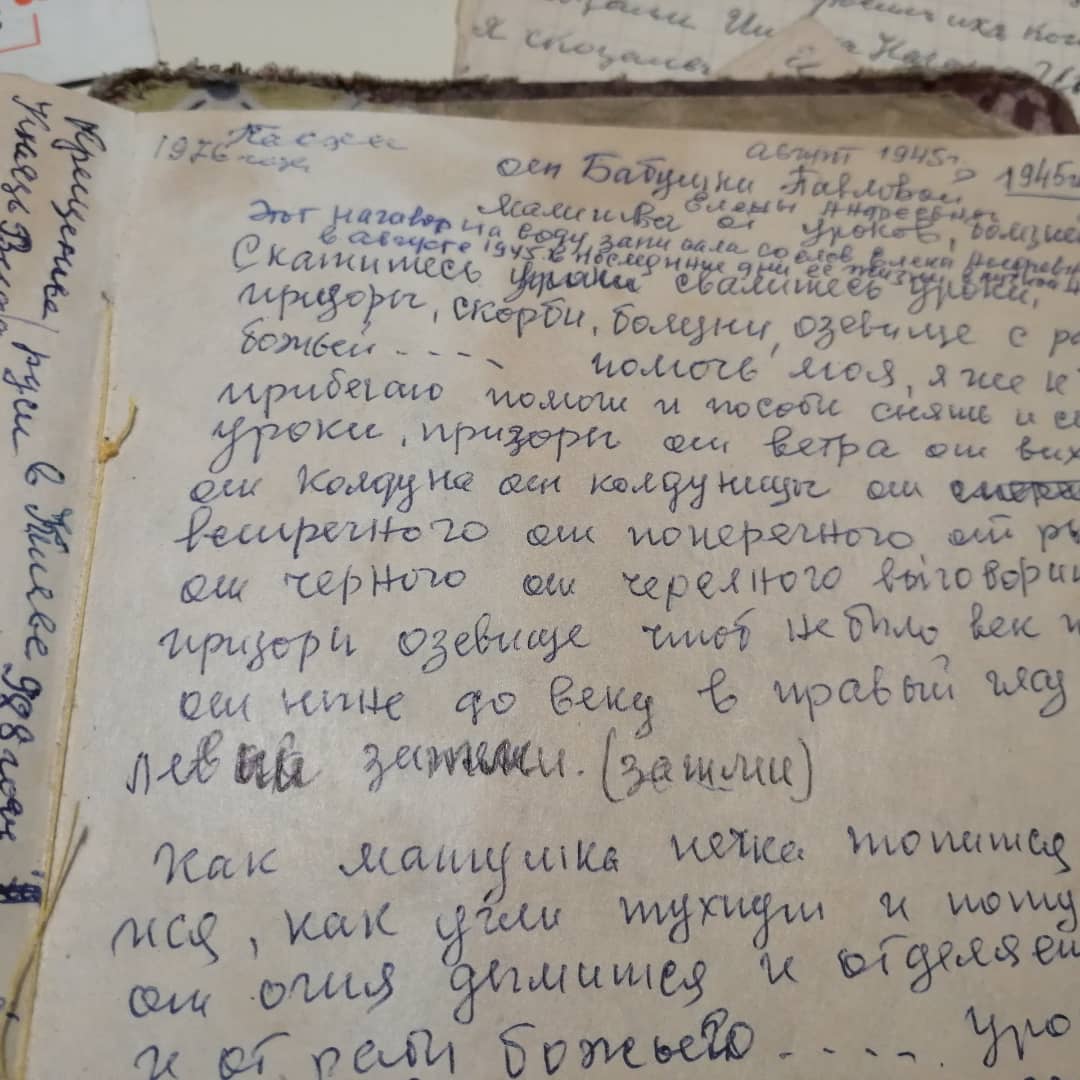 я сказала
Крещение руси в Киеве 988 году
Князь
Пасха
1976 года
август 1945г.
1945г
от Бабушки Павловой
Елены Андреевны
Молитва от уроков, болезней
Этот наговор на воду записала со слов Елены Андреевны
в августе 1945 в последние дни её жизни
Скатитесь уроки свалитесь уроки,
призоры, скорби, болезни, озевище с ра
божьей .... помочь моя, я же к
прибегаю помоги и пособи снять и с
уроки, призоры от ветра от вих
от колдуна от колдуницы от
встречного от поперечного от ры
от черного от черемного выговори
призори озевище чтоб не было век
от ныне до веку в правый глаз
левый зажми. (зажми)
Как матушка печка топится
жся, как угли тухнут и поту
от огня дымится и отделяет
и от рабы божьего .... уро